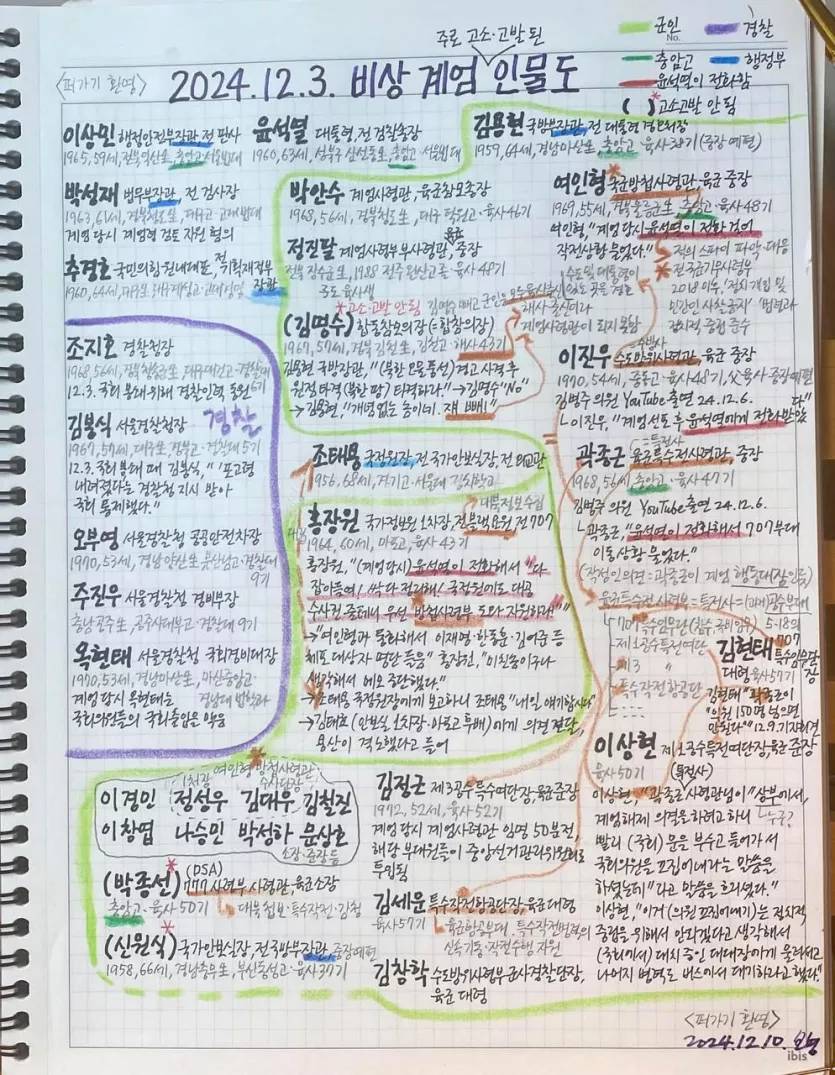 주로 고소·고발 된
군인
경찰
충암고
행정부
윤석열이 전화함
( )* 고소고발 안 됨
No.
<퍼가기 환영>
2024.12.3. 비상 계엄 인물도
이상민 행정안전부장관, 전 판사
1965, 59세, 전북익산生, 충암고·서울법대
박성재 법무부장관, 전 검사장
1963, 61세, 경북청도生, 대구고·고려법대
계엄 당시 계엄령 검토 자원 혐의
추경호 국민의힘 원내대표, 전 기획재정부장관
1960, 64세, 대구生, 대구계성고·고대경영
윤석열 대통령, 전 검찰총장
1960, 63세, 성북구 삼선동生, 충암고·서울법대
김용현 국방부장관, 전 대통령 경호처장
1959, 64세, 경남마산生, 충암고·육사38기(중장 예편)
박안수 계엄사령관, 육군참모총장
1968, 56세, 경북청도生, 대구 덕원고·육사46기
정진팔 계엄사령부부사령관, 육군 중장
전북 장수군生, 1988 전주 완산고졸·육사48기
3도 육사생
*고소·고발 안 됨
김명수 빼고 군인은 모두 육사출신
(김명수) 합동참모의장(=합참의장)
1967, 57세, 경북 김천生, 김천고·해사43기
해사 출신이라
계엄사령관이 되지 못함
김용현 국방장관, "(북한 오물풍선) 경고 사격 후
원점타격(북한 땅) 타격하라." → 김명수 "No"
→ 김용현, "개념없는 놈이네. 쟤 빼!"
여인형 국군방첩사령관, 육군 중장
1969, 55세, 경북울릉군生, 충암고·육사48기
여인형, "계엄 당시 윤석열이 전화 걸어
작전상황 물었다."
→ 적의 스파이 파악·대응
* 전 국군기무사령부
2018 이후, '정치 개입 및
민간인 사찰금지' 법령과
정치적 중립 준수
이진우 수도방위사령관, 육군 중장
=수방사
1970, 54세, 중동고·육사48기, 父육사·중장예편
김병주 의원 YouTube 출연 24.12.6.
ㄴ이진우, "계엄선포 후 윤석열에게 전화 받았다"
곽종근 육군특수전사령관, 중장
=특전사
1968, 56세, 충남고·육사47기
김병주 의원 YouTube 출연 24.12.6.
ㄴ곽종근, "윤석열이 전화해서 707부대
이동상황 물었다."
(작성인의견 = 곽종근이 계엄 행동대(장인듯)
육군특수전 사령부 = 특전사 = (과거)공수부대
제1공수특전여단
제3 〃
특수작전항공단
5·18의
707
김현태 특수임무단장
대령·육사57기
김현태 "곽종근이
'의원 150명 넘으면
안된다'" 12.9. 기자회견
이상현 제1공수특전여단장, 육군 준장
육사50기
(특전사)
이상현, "곽종근사령관님이 "상부에서,
계엄해제 의결을 하려고 하니
누구?
빨리 (국회) 문을 부수고 들어가서
국회의원을 끄집어내라는 말씀을
하셨는데" 라고 말씀을 흐리셨다."
이상현, "이거 (의원 끄집어내기)는 정치적
중립을 위해서 안되겠다고 생각해서
(국회에서) 대치 중인 대대장에게 물러서고
나머지 병력도 버스에서 대기하라고 했다."
조지호 경찰청장
1968, 56세, 경북청송生, 대구대건고·경찰대6기
12.3. 국회 봉쇄 위해 경찰인력 동원
김봉식 서울경찰청장
경찰
1967, 57세, 대구生, 경북고·경찰대 5기
12.3. 국회 봉쇄 때 김봉식, "'포고령
내려졌다'는 경찰청 지시 받아
국회 통제했다."
오부명 서울경찰청 공공안전차장
1970, 53세, 경남양산生, 부산남고·경찰대9기
주진우 서울경찰청 경비부장
충남공주生, 공주사대부고·경찰대 9기
목현태 서울경찰청 국회경비대장
1970, 53세, 경남마산生, 마산중앙고·
경남대 법학과
계엄 당시 목현태는
국회의원들의 국회출입을 막음
조태용 국정원장, 전 국가안보실장, 전 외교관
1956, 68세, 경기고·서울대 정치학과
대북정보수집
홍장원 국가정보원 1차장, 전 블랙요원, 전 707
1964, 60세, 마포고, 육사 43기
홍장원, "(계엄 당시) 윤석열이 전화해서 "다
잡아들여! 싹 다 정리해! 국정원에도 대공
수사권 줄테니 우선 방첩사령부 도와 지원하라""
→ "여인형과 통화해서 이재명·한동훈·김어준 등
체포 대상자 명단 들음" 홍장원, "미친놈이구나
생각해서 메모 중단했다."
→ 조태용 국정원장에게 보고하니 조태용 "내일 얘기합시다"
→ 김태효(안보실 1차장·마포고 후배)에게 의견 전달,
용산이 격노했다고 들어
여인형 방첩사령관
1처장
수사단장
이경민 정성우 김대우 김철진
이창엽 나승민 박성하 윤상호
소장·준장 등
(박종선)* 777사령부 사령관, 육군소장
(DSA)
충암고·육사 50기
→ 대북첩보·특수작전·감청
(신원식)* 국가안보실장, 전국방부장관, 중장예편
1958, 66세, 경남통영生, 부산동성고·육사37기
김정근 제3공수특수여단장, 육군준장
1972, 52세, 육사52기
계엄 당시 계엄사령관 임명 50분전,
해당 부대원들이 중앙선거관리위원회로
투입됨
김세운 특수작전항공단장, 육군 대령
육사57기
→ 육군항공부대, 특수작전병력의
신속기동·작전수행 지원
김창학 수도방위사령부 군사경찰단장,
육군 대령
<퍼가기 환영>
2024.12.10.
ibis